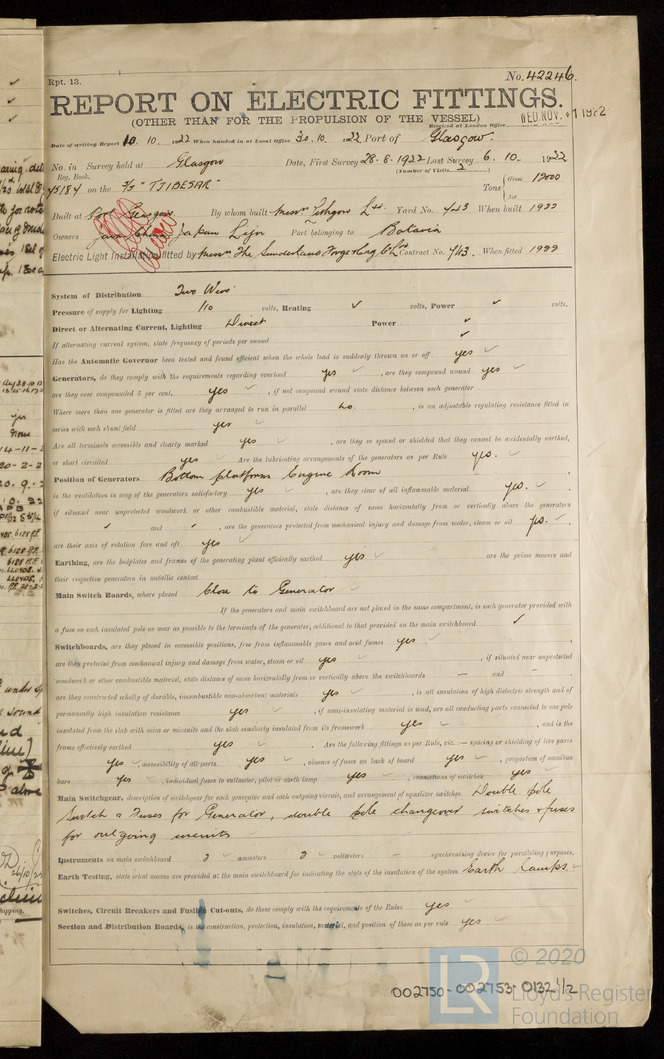 Rpt. 13.
No. 42246.
REPORT ON ELECTRIC FITTINGS.
(OTHER THAN FOR THE PROPULSION OF THE VESSEL)
Received at London Office WED. NOV. 1 1922
Date of writing Report 10. 10. 1922 When handed in at Local Office 30. 10. 1922 Port of Glasgow.
No. in Survey held at Glasgow Date, First Survey 28-8-1922 Last Survey 6. 10. 1922
Reg. Book. (Number of Visits
45184 on the S/S "TJIBESAR" Tons Gross 12000
Net
Built at Glasgow By whom built Messrs Lithgow Ltd. Yard No. 743 When built 1922
Owners Java China Japan Lijn Port belonging to Batavia
Electric Light Installation fitted by Messrs The Sunderland Forge & Eng Co Ltd Contract No. 743 When fitted 1922
System of Distribution Two Wire
Pressure of supply for Lighting 110 volts, Heating ✓ volts, Power ✓ volts.
Direct or Alternating Current, Lighting Direct Power ✓
If alternating current system, state frequency of periods per second ✓
Has the Automatic Governor been tested and found efficient when the whole load is suddenly thrown on or off yes ✓
Generators, do they comply with the requirements regarding overload yes ✓, are they compound wound yes ✓
are they over compounded 5 per cent. yes ✓, if not compound wound state distance between each generator
Where more than one generator is fitted are they arranged to run in parallel no., is an adjustable regulating resistance fitted in
series with each shunt field yes ✓
Are all terminals accessible and clearly marked yes ✓, are they so spaced or shielded that they cannot be accidentally earthed,
or short circuited yes ✓ Are the lubricating arrangements of the generators as per Rule yes. ✓
Position of Generators Bottom platform Engine Room
is the ventilation in way of the generators satisfactory yes ✓, are they clear of all inflammable material yes. ✓
if situated near unprotected woodwork or other combustible material, state distance of same horizontally from or vertically above the generators
✓ and ✓, are the generators protected from mechanical injury and damage from water, steam or oil yes. ✓
are their axis of rotation fore and aft yes
Earthing, are the bedplates and frames of the generating plant efficiently earthed yes ✓ are the prime movers and
their respective generators in metallic contact
Main Switch Boards, where placed Close to Generator
If the generators and main switchboard are not placed in the same compartment, is each generator provided with
a fuse on each insulated pole as near as possible to the terminals of the generator, additional to that provided on the main switchboard ✓
Switchboards, are they placed in accessible positions, free from inflammable gases and acid fumes yes ✓
are they protected from mechanical injury and damage from water, steam or oil yes ✓, if situated near unprotected
woodwork or other combustible material, state distance of same horizontally from or vertically above the switchboards — and —,
are they constructed wholly of durable, incombustible non-absorbent materials yes ✓, is all insulation of high dielectric strength and of
permanently high insulation resistance yes ✓, if semi-insulating material is used, are all conducting parts connected to one pole
insulated from the slab with mica or micanite and the slab similarly insulated from its framework yes ✓, and is the
frame effectively earthed yes ✓. Are the following fittings as per Rule, viz.:— spacing or shielding of live parts
yes ✓, accessibility of all parts yes ✓, absence of fuses on back of board yes ✓, proportion of omnibus
bars yes ✓, individual fuses to voltmeter, pilot or earth lamp yes ✓, connections of switches yes ✓
Main Switchgear, description of switchgear for each generator and each outgoing circuit, and arrangement of equalizer switches Double pole
Switch & Fuses for Generator, double pole changeover switches & fuses
for outgoing circuits
Instruments on main switchboard 2 ✓ ammeters 2 ✓ voltmeters — synchronising device for paralleling purposes.
Earth Testing, state what means are provided at the main switchboard for indicating the state of the insulation of the system Earth Lamps.
Switches, Circuit Breakers and Fusible Cut-outs, do these comply with the requirements of the Rules yes ✓
Section and Distribution Boards, is the construction, protection, insulation, material, and position of these as per rule yes ✓
© 2020
LR
Lloyd's Register
Foundation
002750-002753-0132 1/2